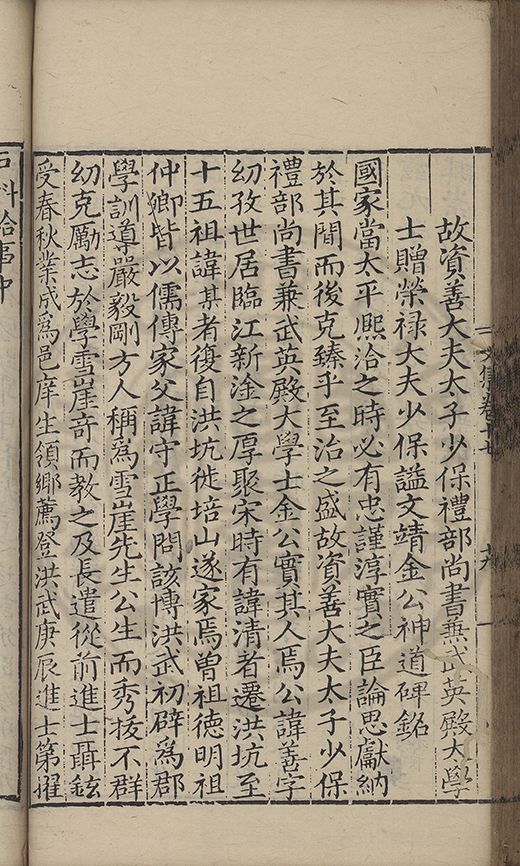 故資善大夫太子少保禮部尚書蕪武英殿大學
士贈榮禄大夫少保謚文靖金公神道碑銘
國家當太平熈洽之時必有忠謹淳實之臣論思獻納
於其間而後克臻乎至治之盛故資善大夫太子少保
禮部尚書兼武英殿大學士金公實其人焉公諱善字
幼孜世居臨江新淦之厚聚宋時有諱清者遷洪坑至
十五祖諱其者復自洪坑徙培山遂家焉曽祖徳明祖
仲卿皆以儒傳家父諱守正學問該博洪武初辟為郡
學訓導嚴毅剛方人稱為雪崖先生公生而秀拔不群
幼克勵志於學雪崖竒而教之及長遣從前進士聶鉉
受春秋業成為邑庠生領鄉薦登洪武庚辰進士第擢
給事中